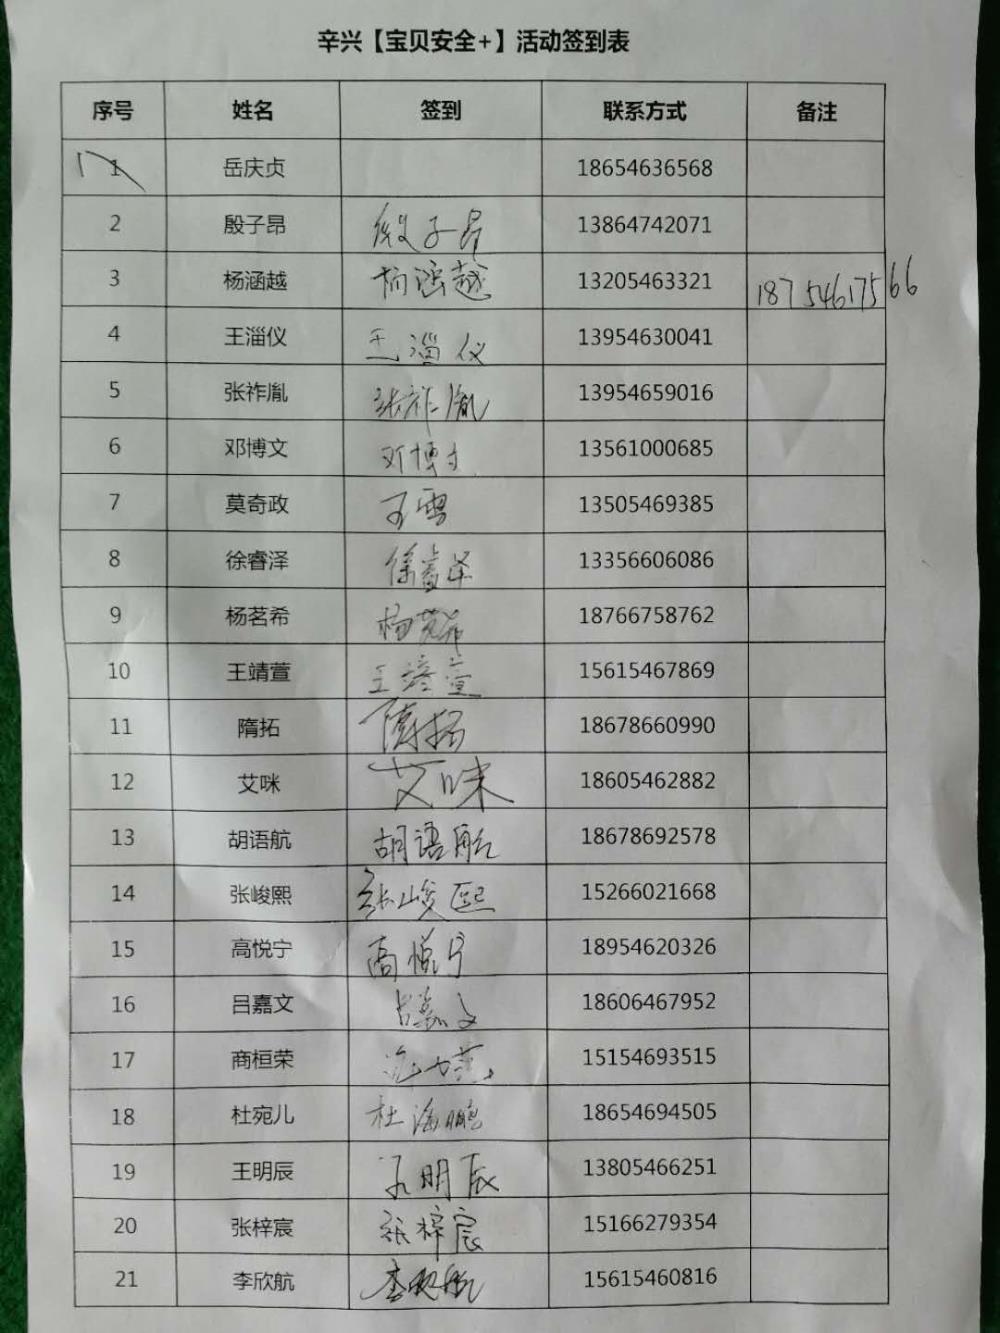 辛兴【宝贝安全+】活动签到表
序号 姓名 签到 联系方式 备注
1 岳庆贞 18654636568
2 殷子昂 殷子昂 13864742071
3 杨涵越 杨涵越 13205463321 18754617566
4 王淄仪 王淄仪 13954630041
5 张祚胤 张祚胤 13954659016
6 邓博文 邓博文 13561000685
7 莫奇政 王雪 13505469385
8 徐睿泽 徐睿泽 13356606086
9 杨茗希 杨茗希 18766758762
10 王靖萱 王靖萱 15615467869
11 隋拓 隋拓 18678660990
12 艾咪 艾咪 18605462882
13 胡语航 胡语航 18678692578
14 张峻熙 张峻熙 15266021668
15 高悦宁 高悦宁 18954620326
16 吕嘉文 吕嘉文 18606467952
17 商桓荣 15154693515
18 杜宛儿 杜海鹏 18654694505
19 王明辰 王明辰 13805466251
20 张梓宸 张梓宸 15166279354
21 李欣航 李欣航 15615460816